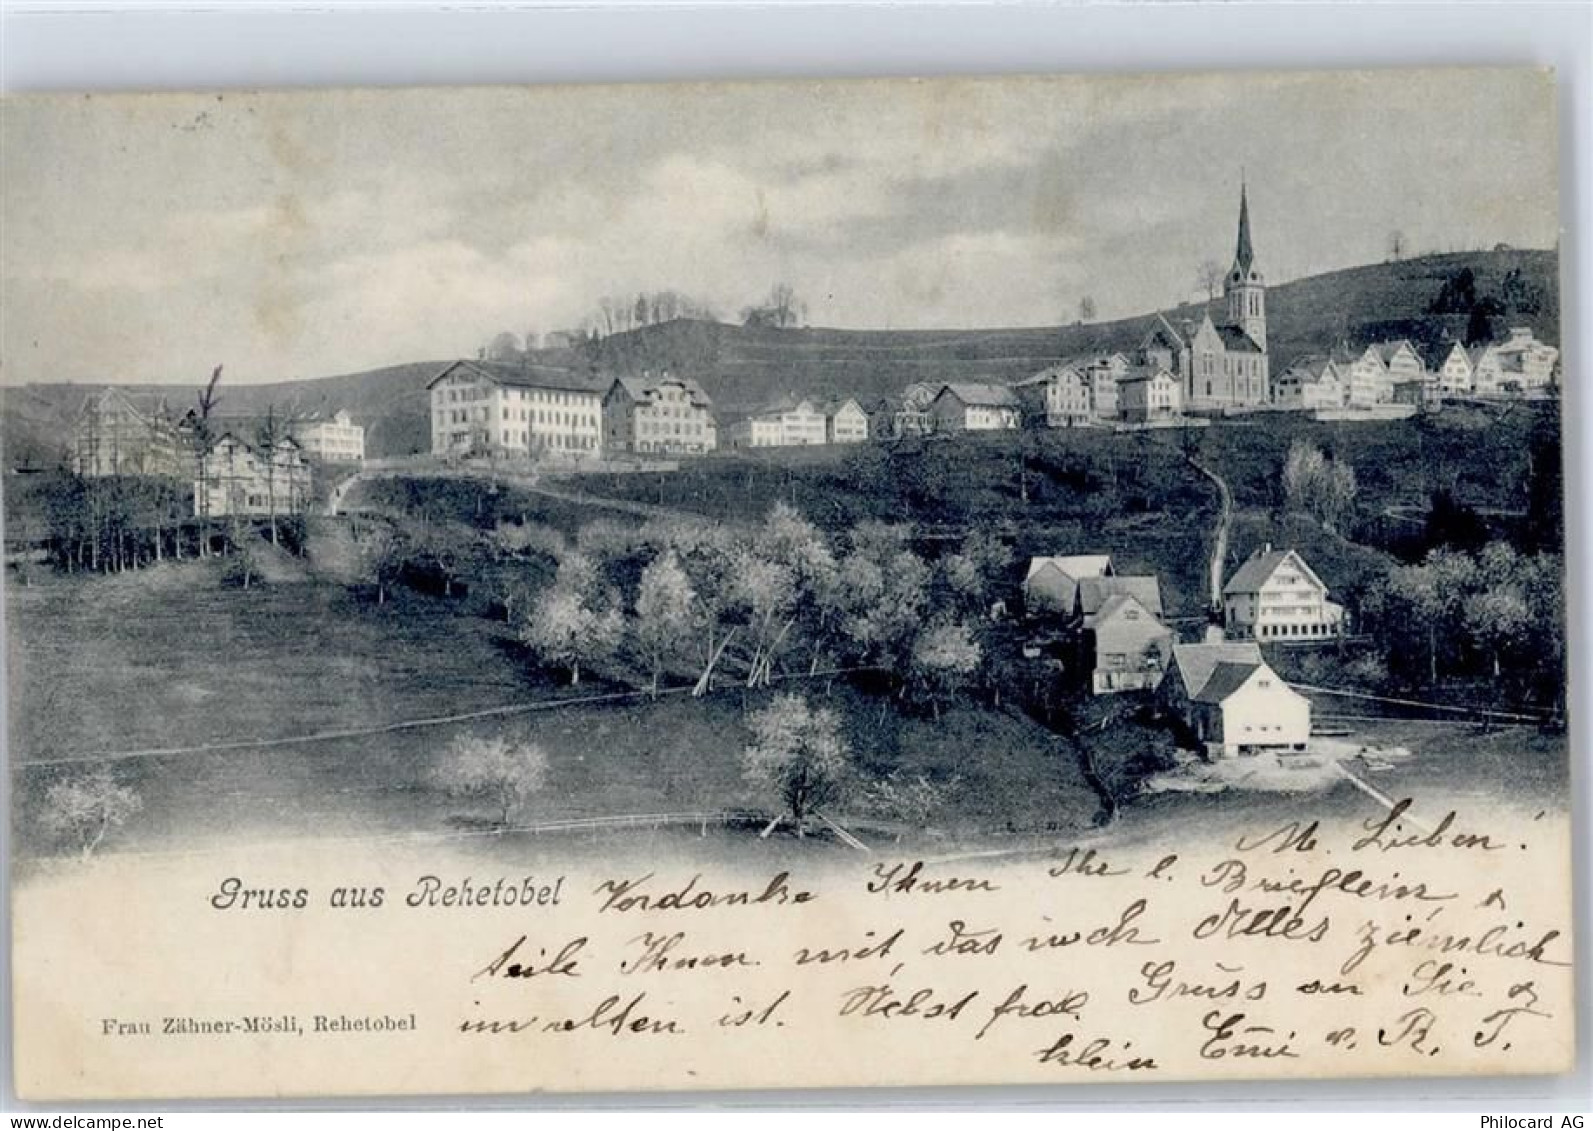 M. Lieben!
Gruss aus Rehetobel
Verdanke Ihnen Ihr l. Brieflein &
teile Ihnen mit, das noch Alles ziemlich
im alten ist. Nebst Gruss an Sie &
klein Emi v. R. T.
Frau Zähner-Mösli, Rehetobel
Philocard AG